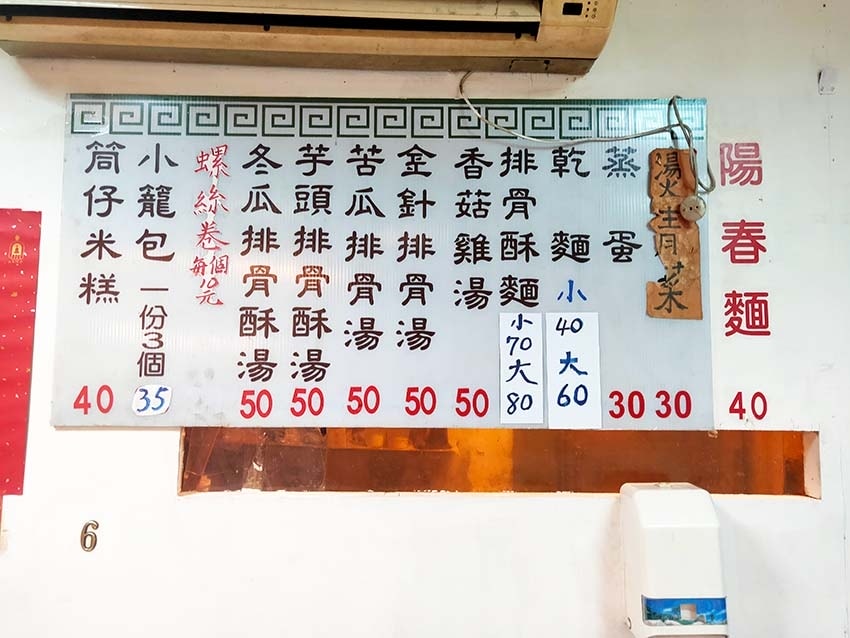 陽春麵 40
燙青菜 30
蒸蛋 30
乾麵 小40 大60
排骨酥麵 小70 大80
香菇雞湯 50
金針排骨湯 50
苦瓜排骨湯 50
芋頭排骨酥湯 50
冬瓜排骨酥湯 50
螺絲卷每個10元
小籠包 一份3個 35
筒仔米糕 40
6